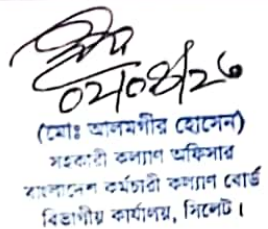 ০২/০৪/২৬
(মোঃ আলমগীর হোসেন)
সহকারী কল্যাণ অফিসার
বাংলাদেশ কর্মচারী কল্যাণ বোর্ড
বিভাগীয় কার্যালয়, সিলেট।